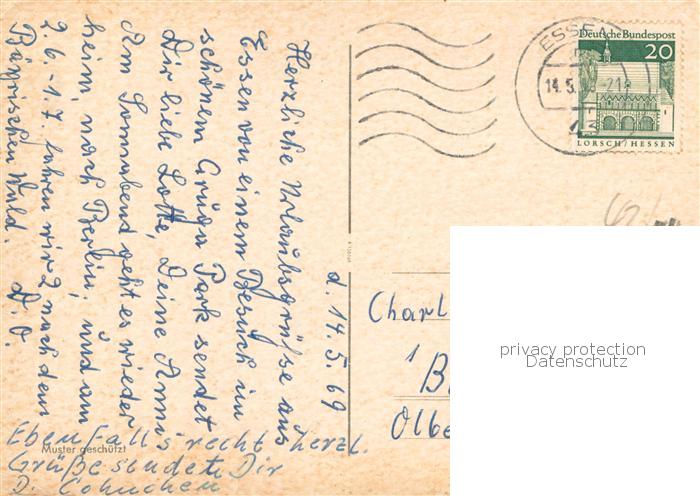 d. 14.5.69
Herzliche Urlaubsgrüße aus
Essen von einem Besuch im
schönem Gruga Park sendet
Dir liebe Lotte, Deine Anni
Am Sonnabend geht es wieder
heim, nach Berlin, und am
2.6.-1.7. fahren wir 2 nach dem
Bayrischen Wald. D. O.
Ebenfalls recht herzl.
Grüße sendet Dir
D.
Muster geschützt
ESSEN
14.5. -21
Deutsche Bundespost
20
LORSCH/HESSEN
Charl
1 B
Olbe
privacy protection
Datenschutz